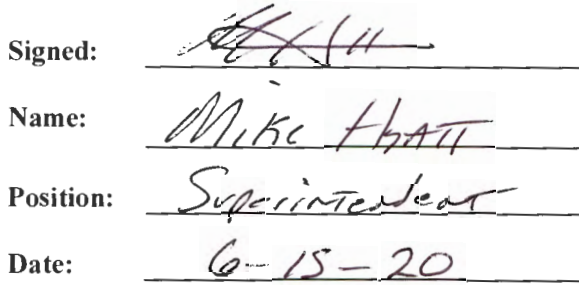 Signed:
Name: Mike Hyatt
Position: Superintendent
Date: 6-15-20